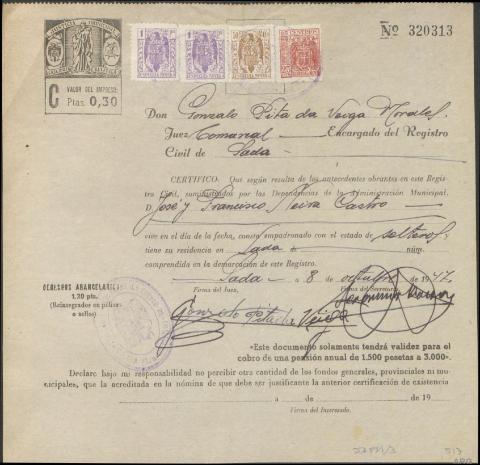 JUSTICIA MUNICIPAL
Nº 320313
C VALOR DEL IMPRESO:
Ptas. 0,30
Don Gonzalo Pita da Veiga Morales,
Juez Comarcal Encargado del Registro
Civil de Sada
CERTIFICO. Que según resulta de los antecedentes obrantes en este Regis-
tro Civil, suministrados por las Dependencias de la Administración Municipal.
D. José y Francisco Neira Castro
vive en el día de la fecha, consta empadronado con el estado de solteros y
tiene su residencia en Sada núm.
comprendida en la demarcación de este Registro.
Sada a 8 de octubre de 1947.
DERECHOS ARANCELARIOS
1,20 ptas.
(Reintegrados en pólizas
o sellos)
Firma del Juez, Firma del Secretario,
Gonzalo Pita da Veiga
«Este documento solamente tendrá validez para el
cobro de una pensión anual de 1.500 pesetas a 3.000».
Declaro bajo mi responsabilidad no percibir otra cantidad de los fondos generales, provinciales ni mu-
nicipales, que la acreditada en la nómina de que debe ser justificante la anterior certificación de existencia
a de de 19
Firma del Interesado.